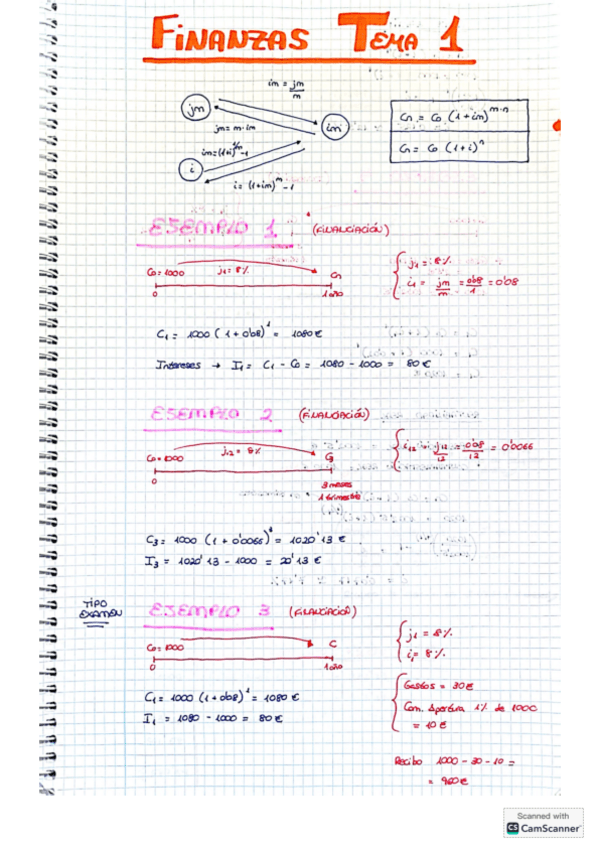 FINANZAS TEMA 1
im = jm/m
jm
jm = m·im
im
im = (1+i)^1/m - 1
i
i = (1+im)^m - 1
Cn = Co (1+im)^m·n
Cn = Co (1+i)^n
EJEMPLO 1 (FINANCIACIÓN)
Co = 1000
j1 = 8%
Cn
0
1 año
j1 = 8%
i1 = jm/m = 0'08/1 = 0'08
C1 = 1000 (1 + 0'08)^1 = 1080 €
Intereses → I1 = C1 - Co = 1080 - 1000 = 80 €
EJEMPLO 2 (FINANCIACIÓN)
Co = 1000
j12 = 8%
C3
0
3 meses
1 trimestre
i12 = j12/12 = 0'08/12 = 0'0066
C3 = 1000 (1 + 0'0066) = 1020'13 €
I3 = 1020'13 - 1000 = 20'13 €
TIPO EXAMEN
EJEMPLO 3 (FINANCIACIÓN)
Co = 1000
C
0
1 año
j1 = 8%
i1 = 8%
C1 = 1000 (1 + 0'08)^1 = 1080 €
I1 = 1080 - 1000 = 80 €
Gastos = 30 €
Com. Apertura 1% de 1000
= 10 €
Recibo 1000 - 30 - 10 =
= 960 €
Scanned with
CS CamScanner